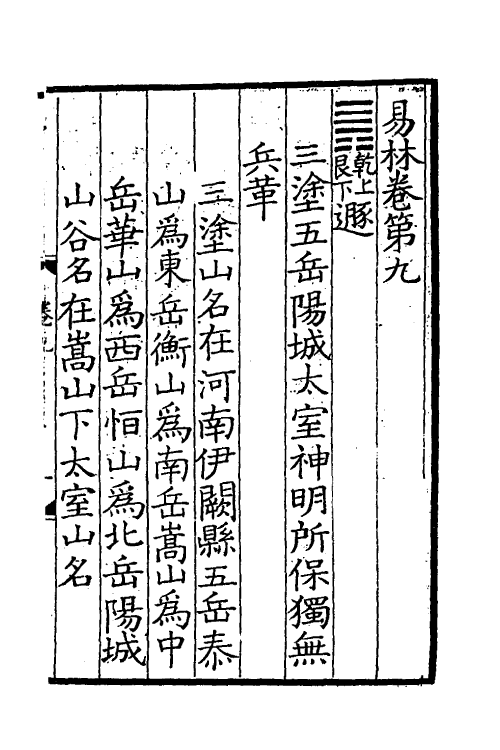 易林卷第九
䷠乾上艮下遯
三塗五岳陽城太室神明所保獨無
兵革
三塗山名在河南伊闕縣五岳泰
山爲東岳衡山爲南岳嵩山爲中
岳華山爲西岳恒山爲北岳陽城
山谷名在嵩山下太室山名
卷九